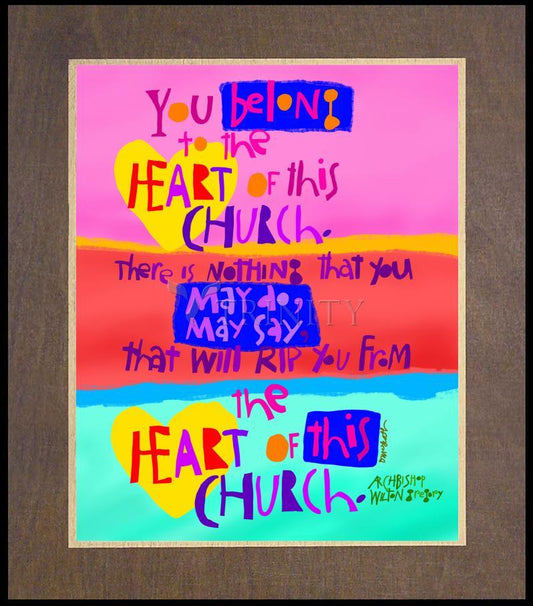 You beloNg
to the
HEART OF this
CHURCh.
There is NOTHiNg that you
May do,
TRINITY
May say,
that will RIP you From
the
HEART OF this
CHURCh.
ARCHBISHOP
WILTON gregory